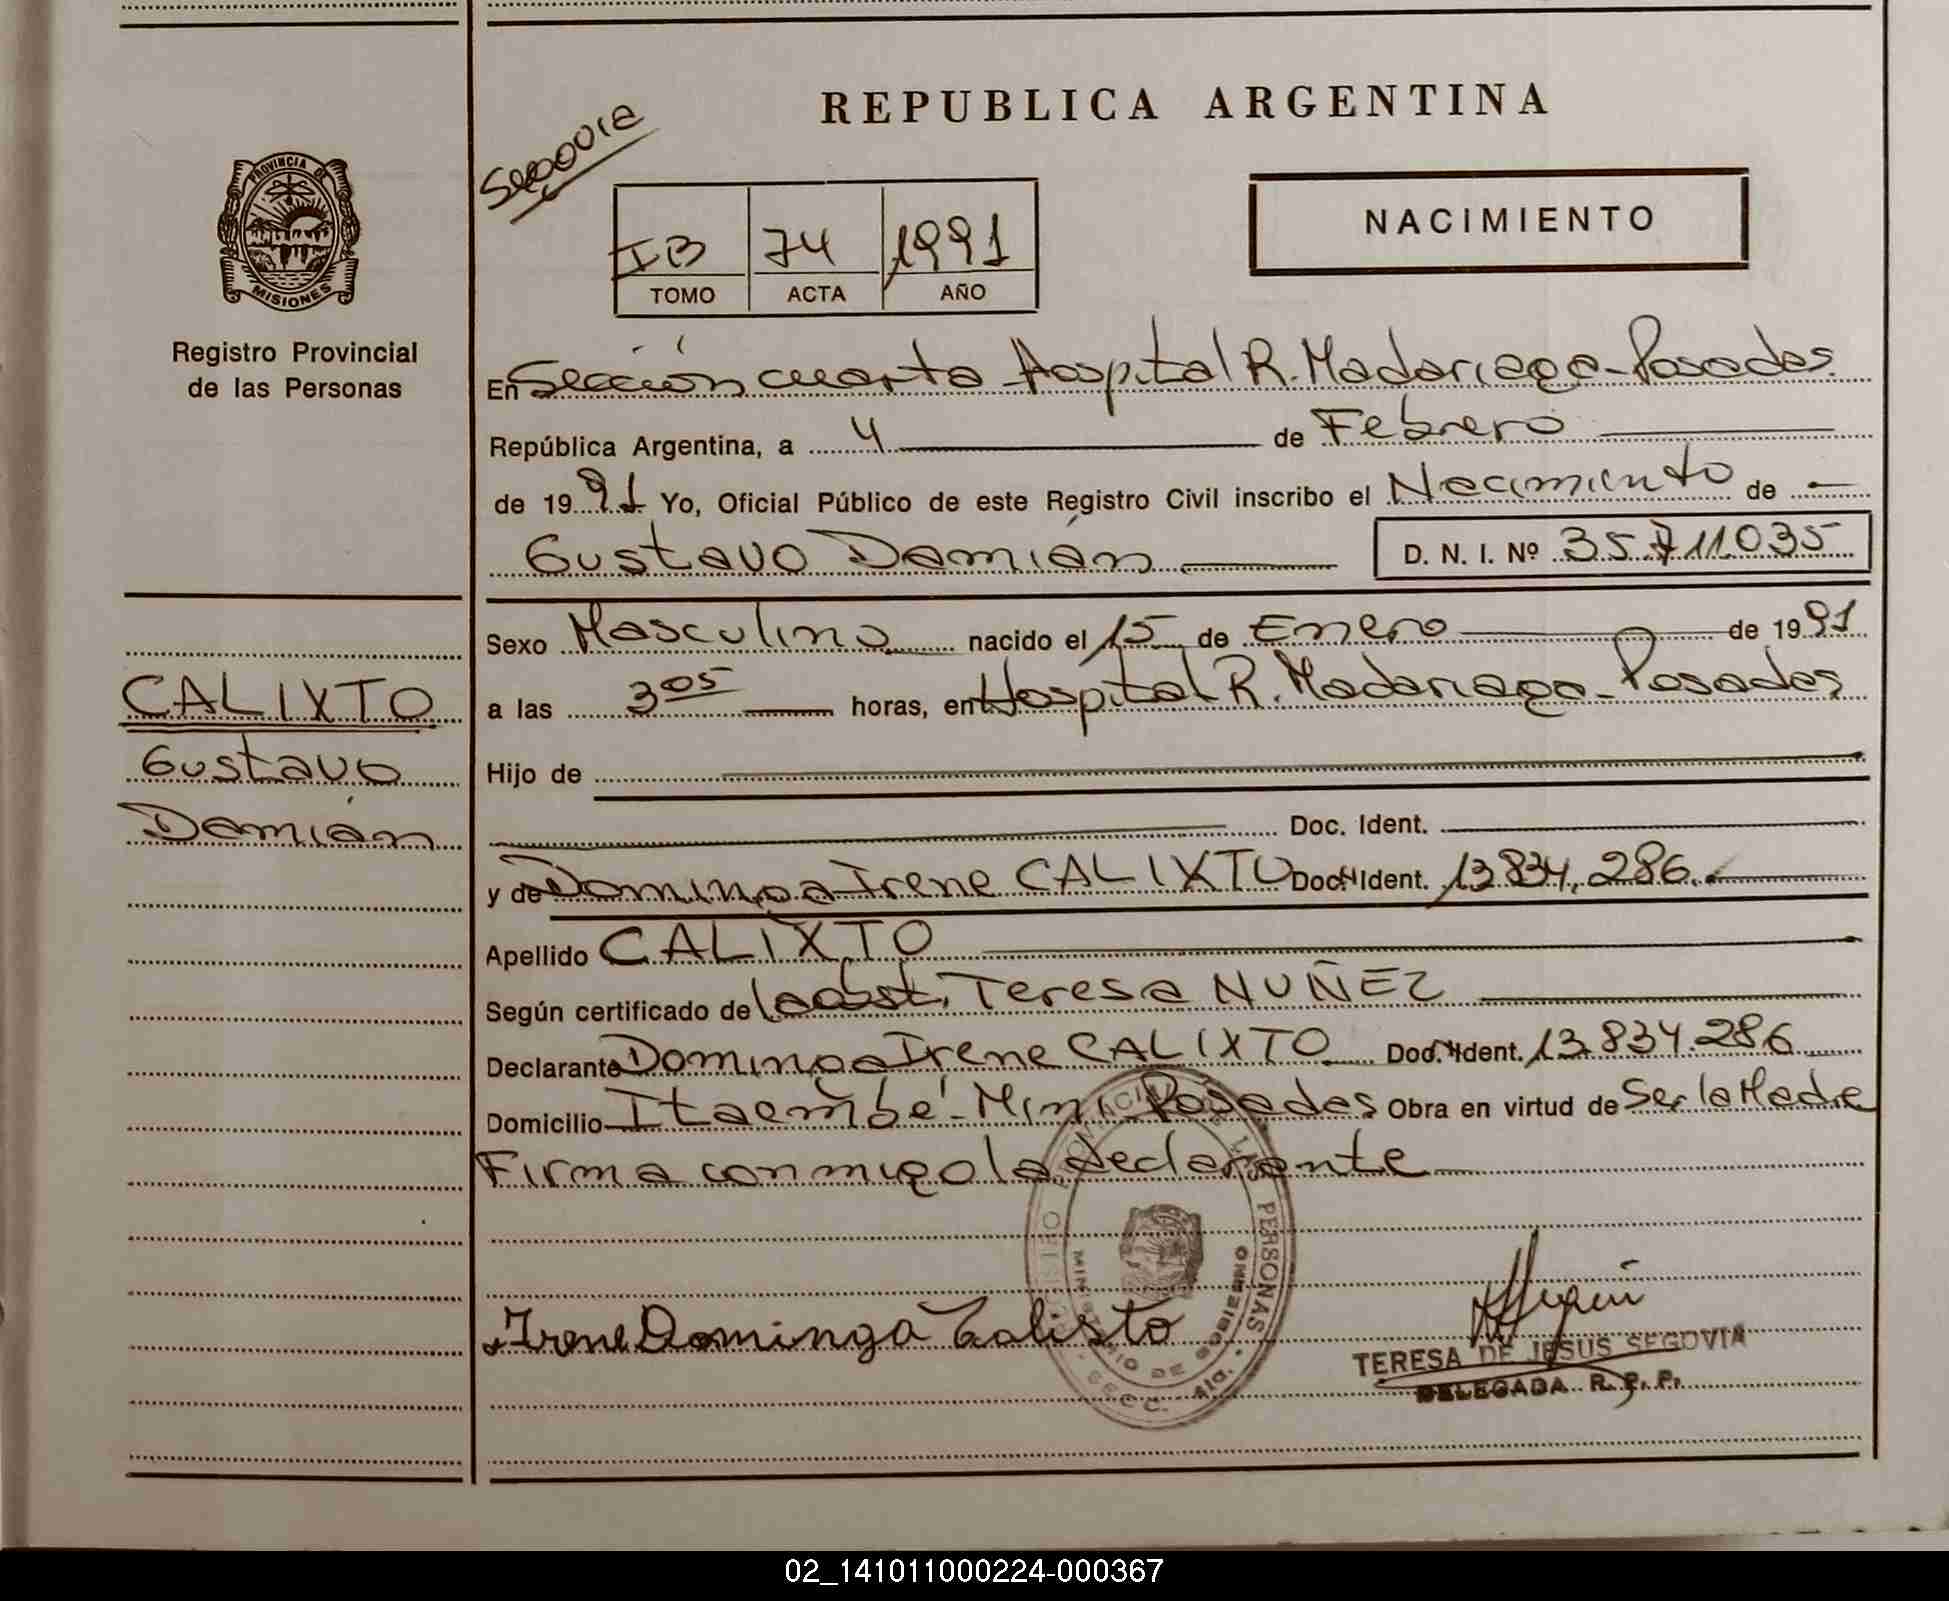 REPUBLICA ARGENTINA
Segovia
NACIMIENTO
IB 74 1991
TOMO ACTA AÑO
PROVINCIA DE
MISIONES
Registro Provincial
de las Personas
En Sección cuarta Hospital R. Madariaga - Posadas
República Argentina, a 4 de Febrero
de 1991 Yo, Oficial Público de este Registro Civil inscribo el Nacimiento de
Gustavo Damián D. N. I. Nº 35711035
Sexo Masculino nacido el 15 de Enero de 1991
CALIXTO
Gustavo
Damián
a las 3 05 horas, en Hospital R. Madariaga - Posadas
Hijo de
Doc. Ident.
y de Dominga Irene CALIXTO Doc. Ident. 13.834.286.
Apellido CALIXTO
Según certificado de la obst. Teresa NUÑEZ
Declarante Dominga Irene CALIXTO Doc. Ident. 13.834.286
Domicilio Itaembé - Miní Posadas Obra en virtud de Ser la Madre
Firma conmigo la declarante
REGISTRO PROVINCIAL DE LAS PERSONAS
MINISTERIO DE GOBIERNO
SECC. 4ta.
Irene Dominga Calisto
TERESA DE JESUS SEGOVIA
DELEGADA R. P. P.
02_141011000224-000367